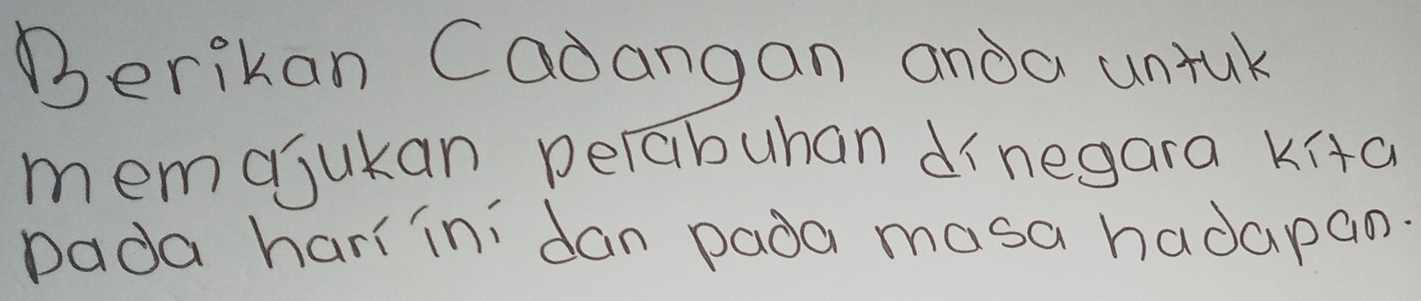 Berikan Cadangan anda untuk
memajukan pelabuhan dinegara kita
pada hari ini dan pada masa hadapan.